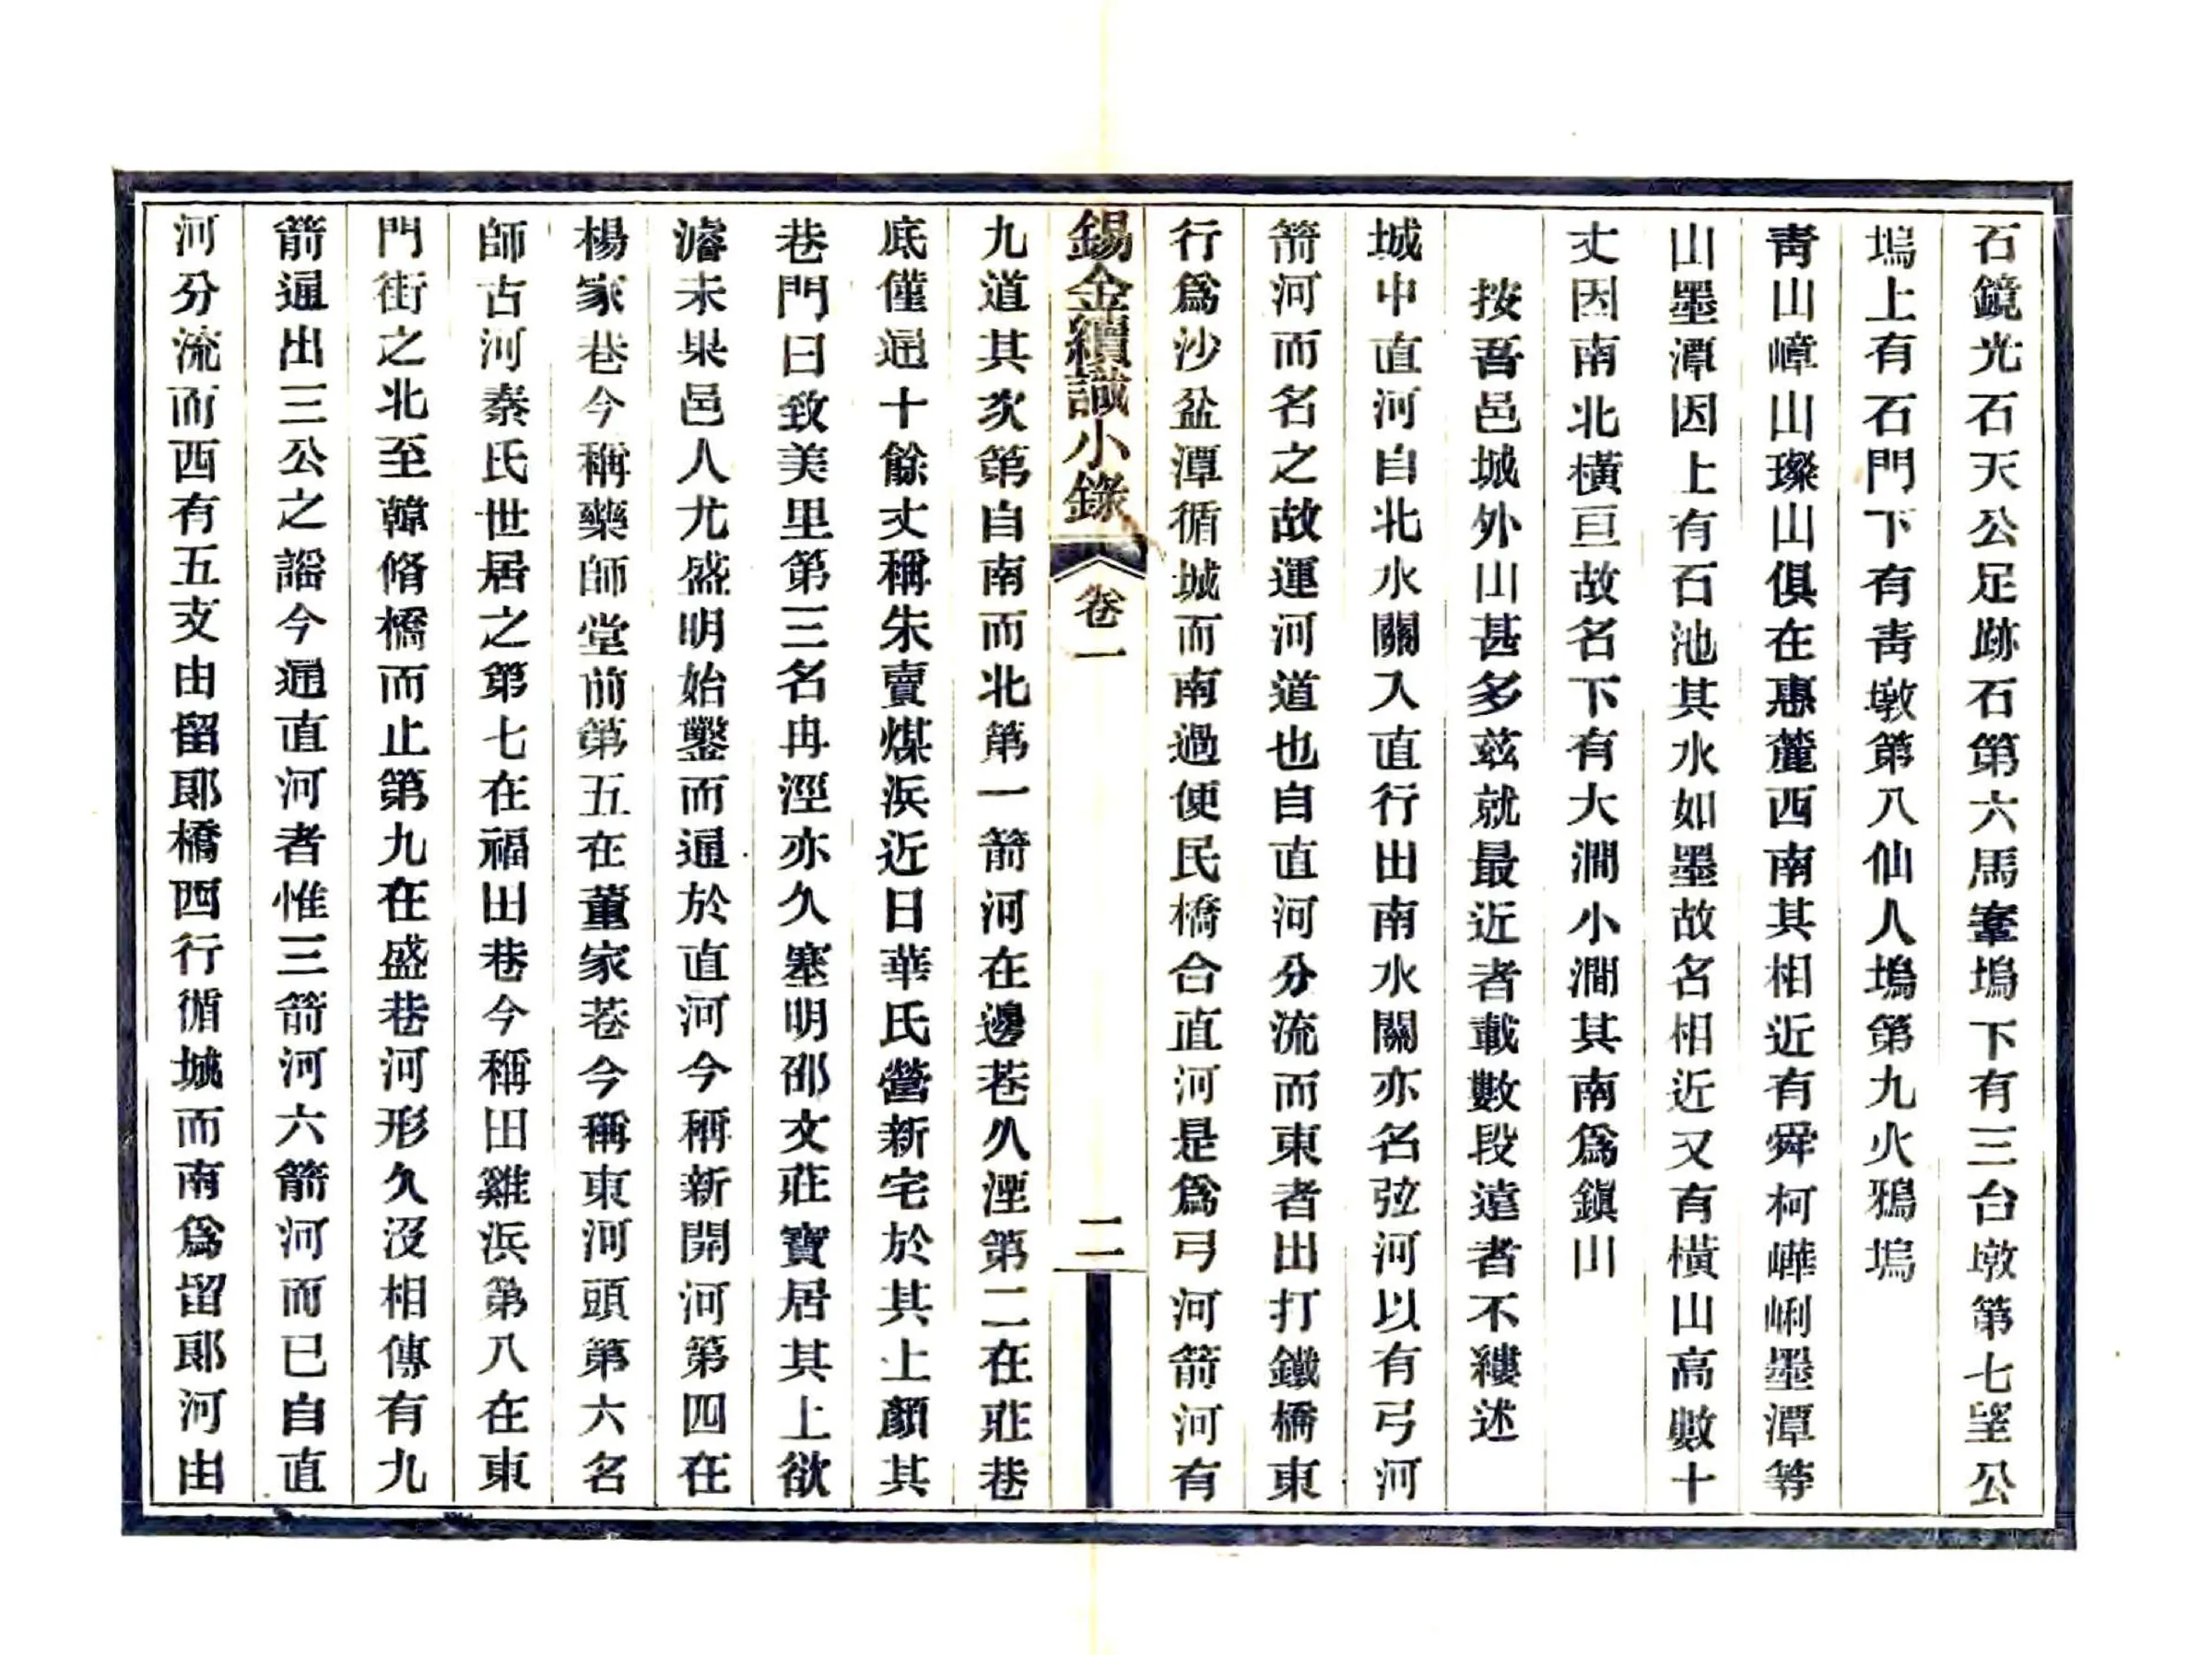 石鏡光石天公足跡石第六馬鞌塢下有三台墩第七望公
塢上有石門下有靑墩第八仙人塢第九火鴉塢
靑山嶂山璨山俱在惠麓西南其相近有舜柯嶂峢墨潭等
山墨潭因上有石池其水如墨故名相近又有橫山高數十
丈因南北橫亘故名下有大澗小澗其南爲鎭山
按吾邑城外山甚多茲就最近者載數段遠者不縷述
城中直河自北水關入直行出南水關亦名弦河以有弓河
箭河而名之故運河道也自直河分流而東者出打鐵橋東
行爲沙盆潭循城而南過便民橋合直河是爲弓河箭河有
錫金續識小錄 卷一 二
九道其次第自南而北第一箭河在邊巷久湮第二在莊巷
底僅通十餘丈稱朱賣煤浜近日華氏營新宅於其上顏其
巷門曰致美里第三名冉涇亦久塞明邵文莊寶居其上欲
濬未果邑人尤盛明始鑿而通於直河今稱新開河第四在
楊家巷今稱藥師堂前第五在董家巷今稱東河頭第六名
師古河秦氏世居之第七在福田巷今稱田雞浜第八在東
門街之北至韓脩橋而止第九在盛巷河形久沒相傳有九
箭通出三公之謠今通直河者惟三箭河六箭河而已自直
河分流而西有五支由留郞橋西行循城而南爲留郞河由